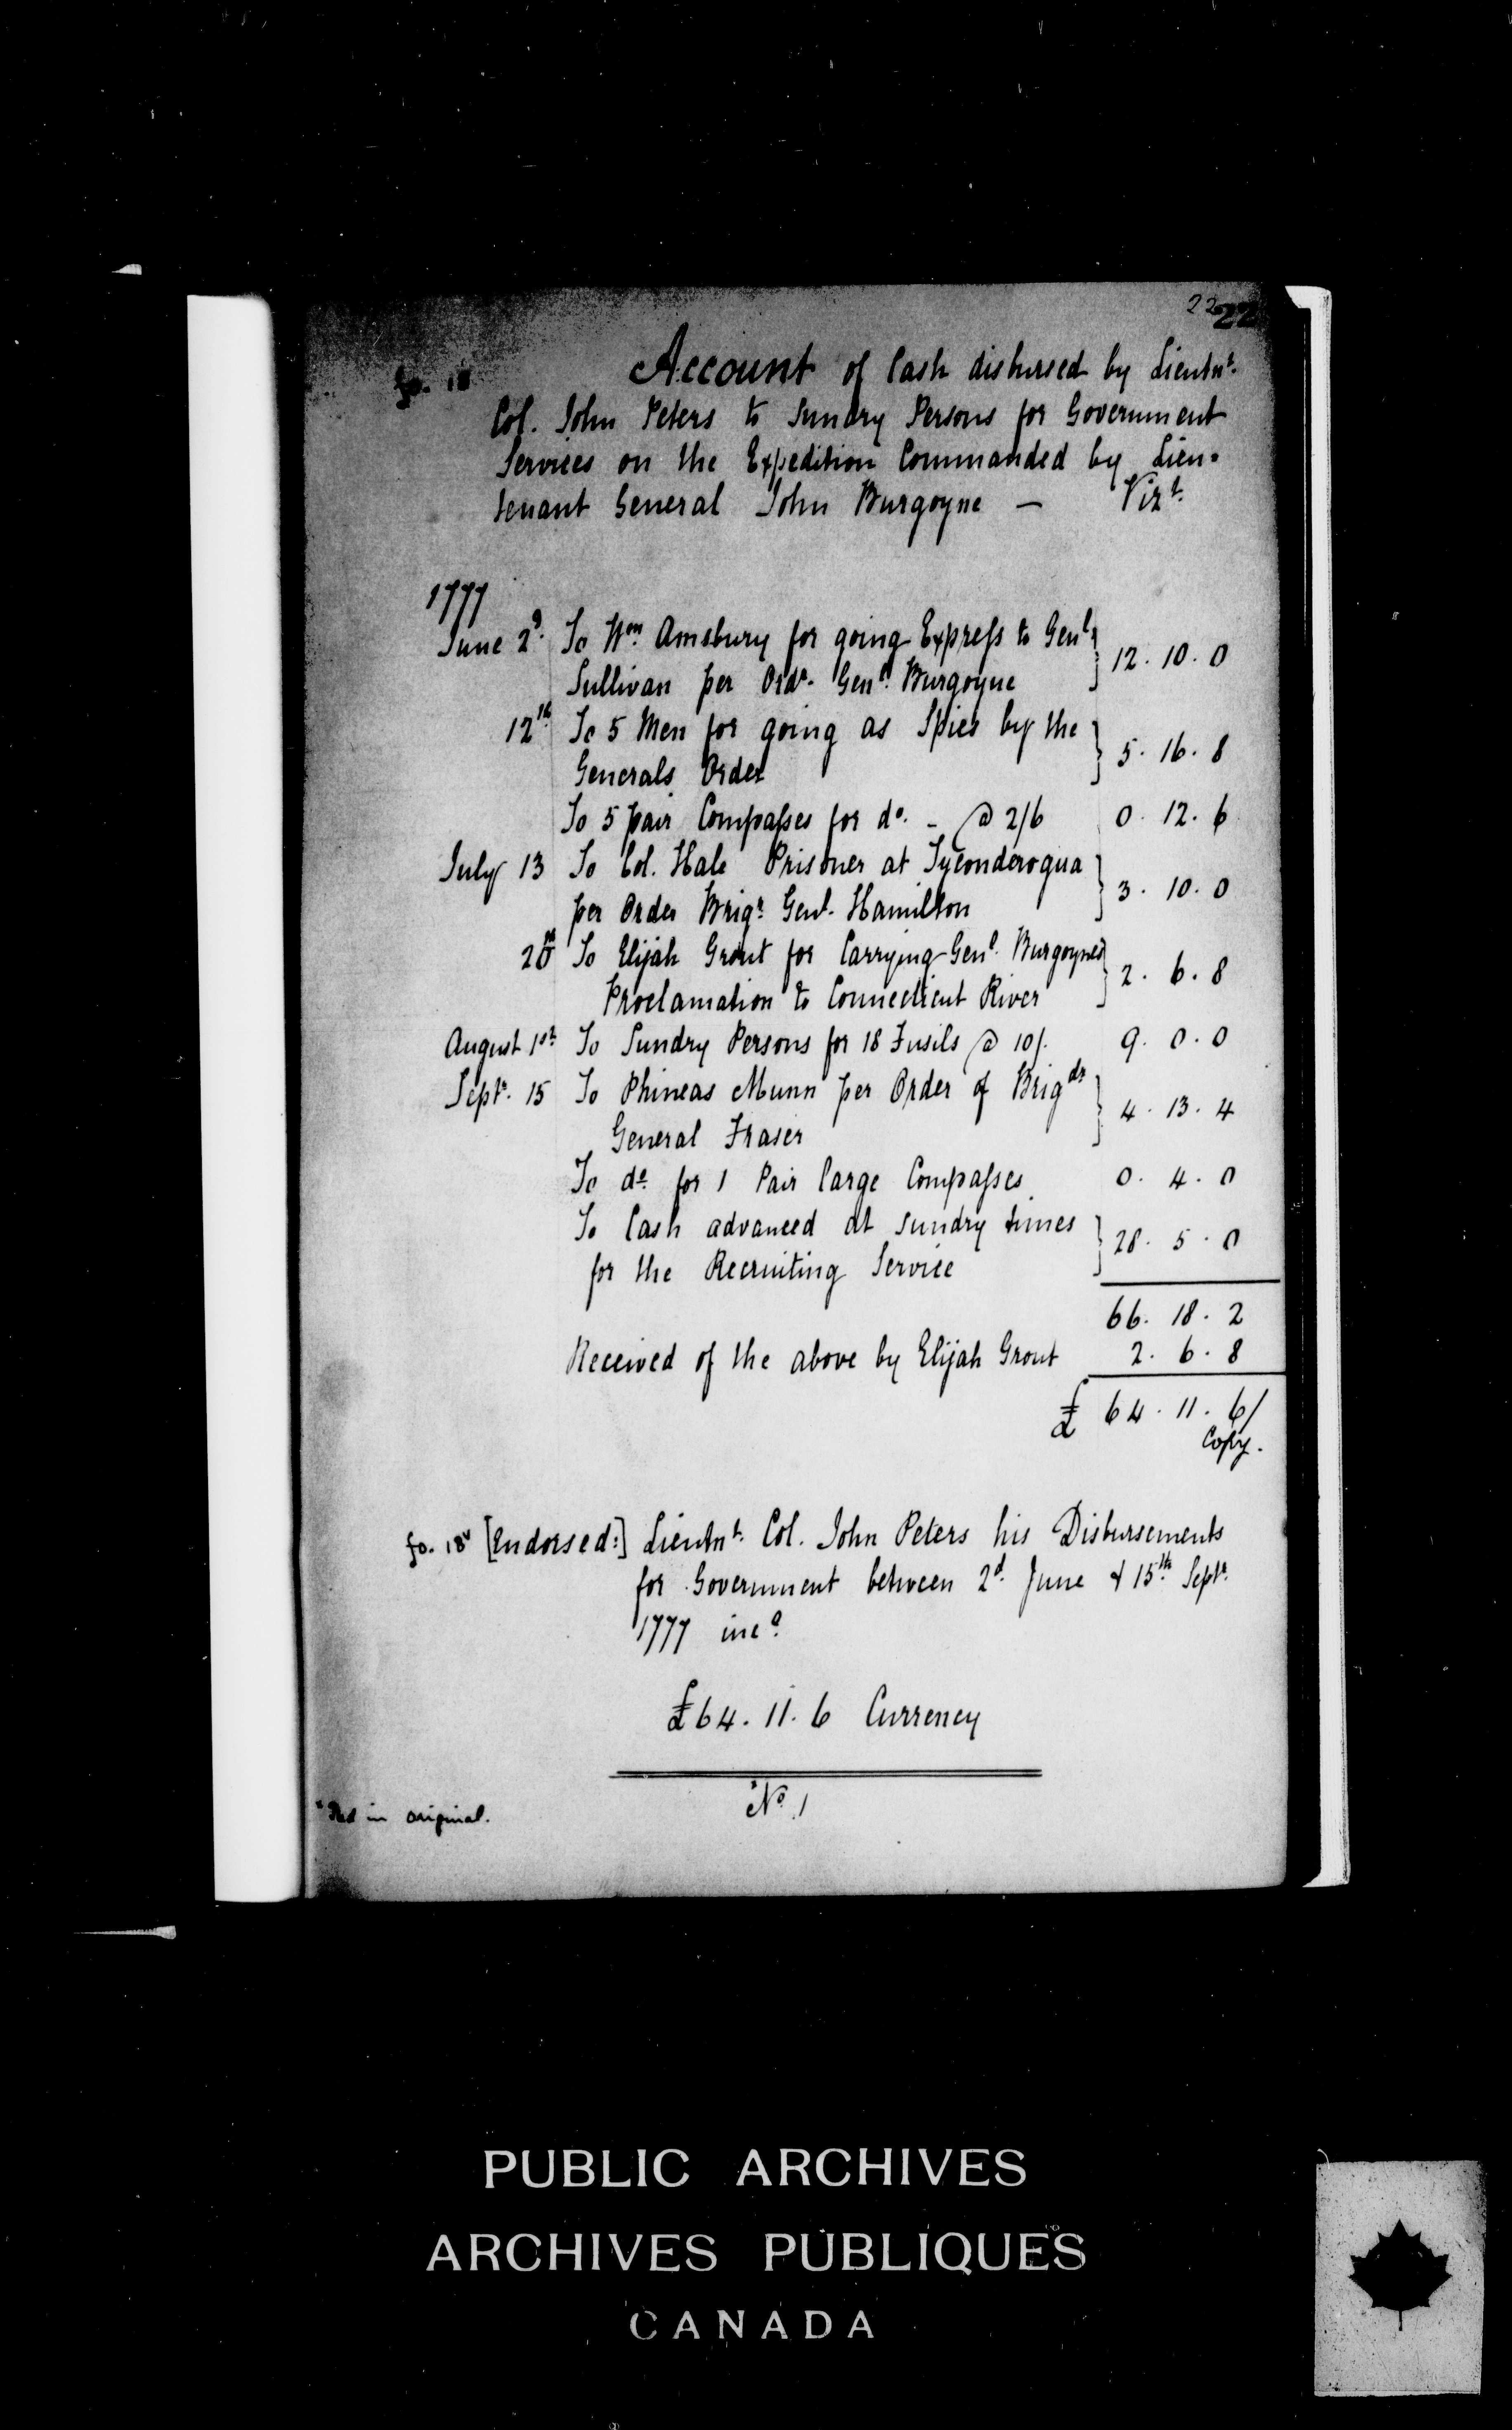 22 22
fo. 18 Account of Cash disbursed by Lieutnt.
Col. John Peters to Sundry Persons for Government
Services on the Expedition Commanded by Lieu-
tenant General John Burgoyne — Vizt.
1777
June 2d. To Wm. Amsbury for going Express to Genl. } 12. 10. 0
Sullivan per Ordr. Genl. Burgoyne
12th To 5 Men for going as Spies by the } 5. 16. 8
Generals Order
To 5 pair Compasses for do. - @ 2/6 0. 12. 6
July 13 To Col. Hale Prisoner at Tyconderogua } 3. 10. 0
per Order Brigr. Genl. Hamilton
20th To Elijah Grout for Carrying Genl. Burgoynes } 2. 6. 8
Proclamation to Connecticut River
August 1st. To Sundry Persons for 18 Fusils @ 10/. 9. 0. 0
Septr. 15 To Phineas Munn per Order of Brigdr } 4. 13. 4
General Fraser
To do. for 1 Pair large Compasses 0. 4. 0
To Cash advanced at sundry times } 28. 5. 0
for the Recruiting Service
66. 18. 2
Received of the above by Elijah Grout 2. 6. 8
£ 64. 11. 6/
Copy.
fo. 18v [Endorsed:] Lieutnt. Col. John Peters his Disbursements
for Government between 2d. June & 15th Septr.
1777 incl.
£64. 11. 6 Currency
No. 1
in original.
PUBLIC ARCHIVES
ARCHIVES PUBLIQUES
CANADA